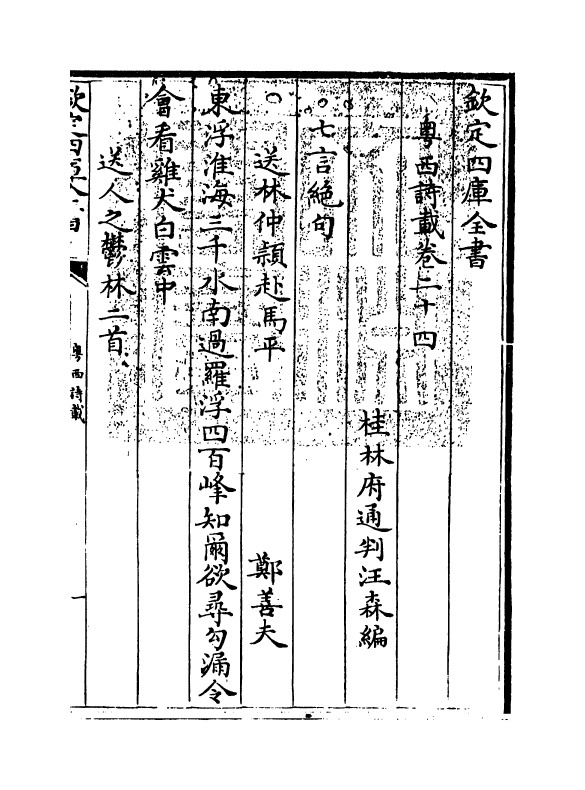 欽定四庫全書
粵西詩載卷二十四
桂林府通判汪森編
七言絕句
送林仲頴赴馬平　鄭善夫
東浮淮海三千水南過羅浮四百峰知爾欲尋勾漏令
會看雞犬白雲中
送人之鬱林二首
欽定四庫全書
粵西詩載
一